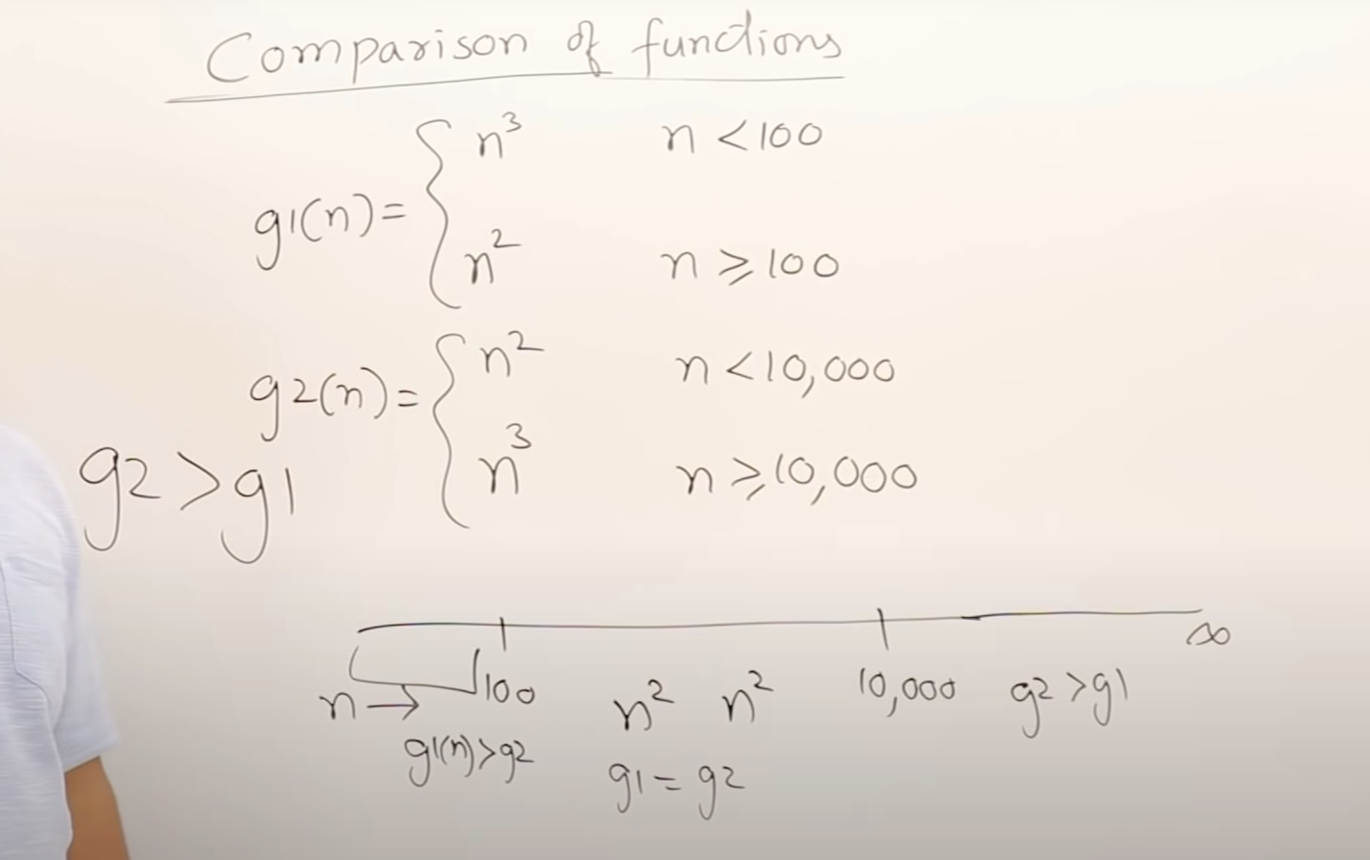 Comparison of functions
n³ n < 100
g1(n) =
n² n ⩾ 100
n² n < 10,000
g2(n) =
n³ n ⩾ 10,000
g2 > g1
∞
n → 100 n² n² 10,000 g2 > g1
g1(n) > g2 g1 = g2